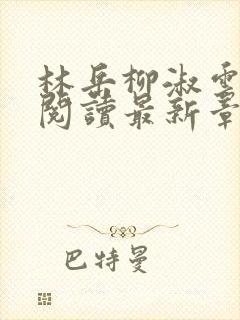 林岳柳淑雲
閱讀最新章
巴特曼